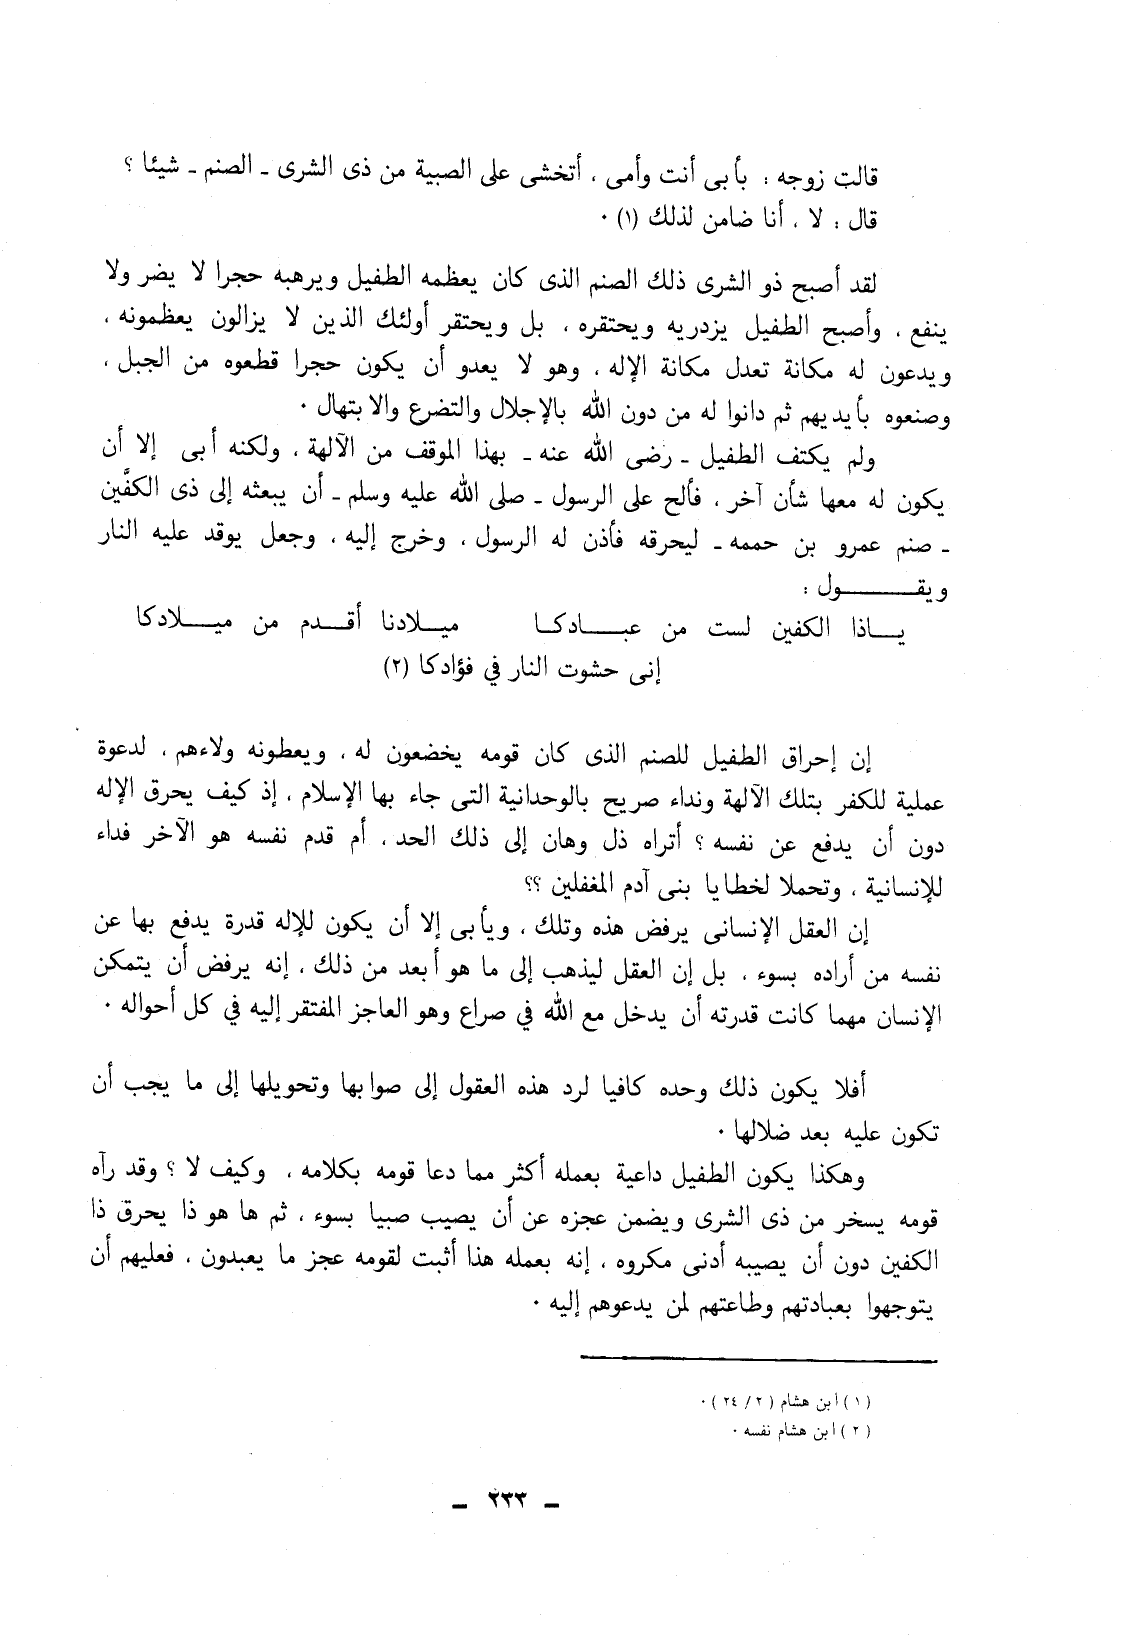 قالت زوجه : بأبى أنت وأمى ، أتخشى على الصبية من ذى الشرى ـ الصنم ـ شيئا ؟
قال : لا ، أنا ضامن لذلك (١) ٠
لقد أصبح ذو الشرى ذلك الصنم الذى كان يعظمه الطفيل ويرهبه حجرا لا يضر ولا
ينفع ، وأصبح الطفيل يزدريه ويحتقره ، بل ويحتقر أولئك الذين لا يزالون يعظمونه ،
ويدعون له مكانة تعدل مكانة الإله ، وهو لا يعدو أن يكون حجرا قطعوه من الجبل ،
وصنعوه بأيديهم ثم دانوا له من دون الله بالإجلال والتضرع والابتهال ٠
ولم يكتف الطفيل ـ رضى الله عنه ـ بهذا الموقف من الآلهة ، ولكنه أبى إلا أن
يكون له معها شأن آخر ، فألح على الرسول ـ صلى الله عليه وسلم ـ أن يبعثه إلى ذى الكفَّين
ـ صنم عمرو بن حممه ـ ليحرقه فأذن له الرسول ، وخرج إليه ، وجعل يوقد عليه النار
ويقـــــــول :
يـــاذا الكفين لست من عبـــــادكـا ميـــلادنا أقـــدم من ميـــــلادكا
إنى حشوت النار في فؤادكا (٢)
إن إحراق الطفيل للصنم الذى كان قومه يخضعون له ، ويعطونه ولاءهم ، لدعوة
عملية للكفر بتلك الآلهة ونداء صريح بالوحدانية التى جاء بها الإسلام ، إذ كيف يحرق الإله
دون أن يدفع عن نفسه ؟ أتراه ذل وهان إلى ذلك الحد ، أم قدم نفسه هو الآخر فداء
للإنسانية ، وتحملا لخطايا بنى آدم المغفلين ؟؟
إن العقل الإنسانى يرفض هذه وتلك ، ويأبى إلا أن يكون للإله قدرة يدفع بها عن
نفسه من أراده بسوء ، بل إن العقل ليذهب إلى ما هو أبعد من ذلك ، إنه يرفض أن يتمكن
الإنسان مهما كانت قدرته أن يدخل مع الله في صراع وهو العاجز المفتقر إليه في كل أحواله ٠
أفلا يكون ذلك وحده كافيا لرد هذه العقول إلى صوابها وتحويلها إلى ما يجب أن
تكون عليه بعد ضلالها ٠
وهكذا يكون الطفيل داعية بعمله أكثر مما دعا قومه بكلامه ، وكيف لا ؟ وقد رآه
قومه يسخر من ذى الشرى ويضمن عجزه عن أن يصيب صبيا بسوء ، ثم ها هو ذا يحرق ذا
الكفين دون أن يصيبه أدنى مكروه ، إنه بعمله هذا أثبت لقومه عجز ما يعبدون ، فعليهم أن
يتوجهوا بعبادتهم وطاعتهم لمن يدعوهم إليه ٠
(١) ابن هشام (٢/ ٢٤) ٠
(٢) ابن هشام نفسه ٠
ـ ٢٣٣ ـ